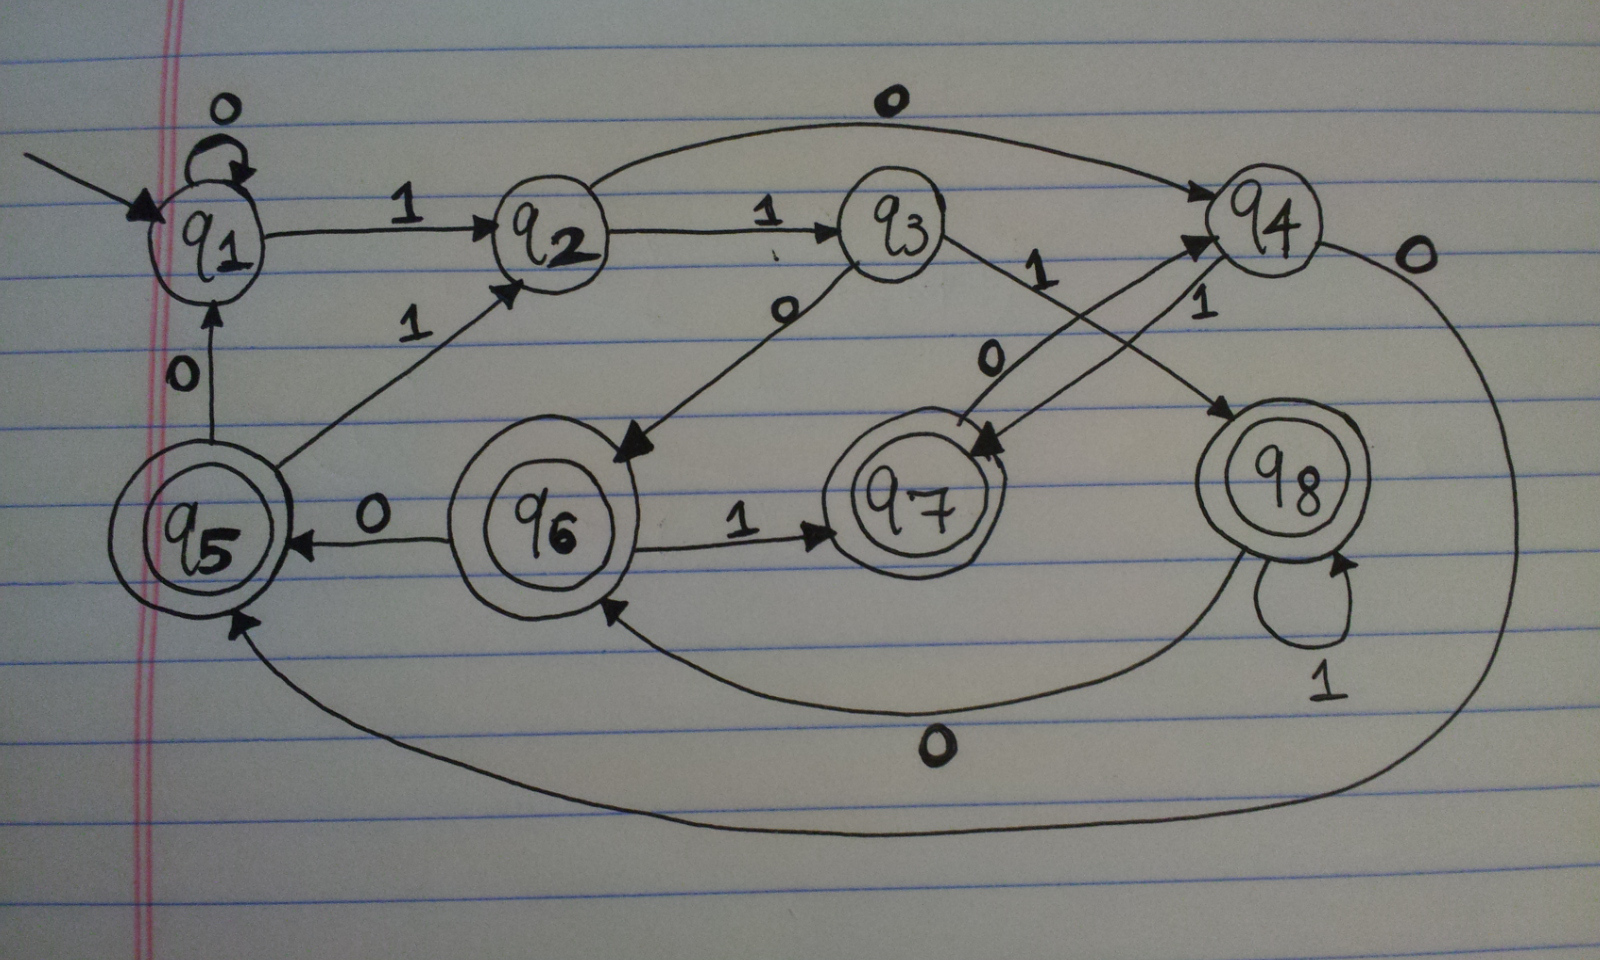 0
0
1
1
q1
q2
q3
q4
0
1
1
0
1
0
0
q5
0
q6
1
q7
q8
1
0